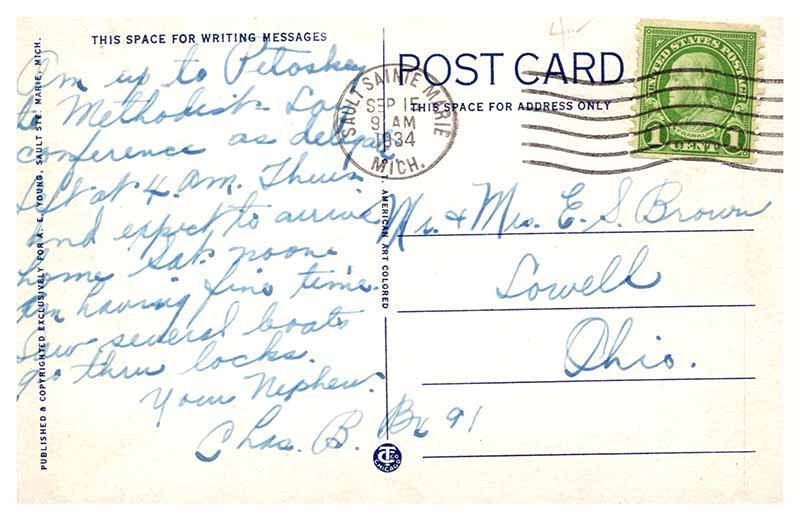 THIS SPACE FOR WRITING MESSAGES
Am up to Petoskey
to Methodist Lay
conference as delegate
Left at 4 A.M. Thurs
and expect to arrive
home Sat. noone
am having fine time.
Saw several boats
go thru locks.
Your Nephew.
Chas. B. Bx 91
PUBLISHED & COPYRIGHTED EXCLUSIVELY FOR A. E. YOUNG, SAULT STE. MARIE, MICH.
AMERICAN ART COLORED
C.T. CO.
CHICAGO
POST CARD
THIS SPACE FOR ADDRESS ONLY
SAULT SAINTE MARIE
SEP 15
9 AM
1934
MICH.
UNITED STATES POSTAGE
FRANKLIN
1 CENT 1
Mr. & Mrs. E. S. Brown
Lowell
Ohio.